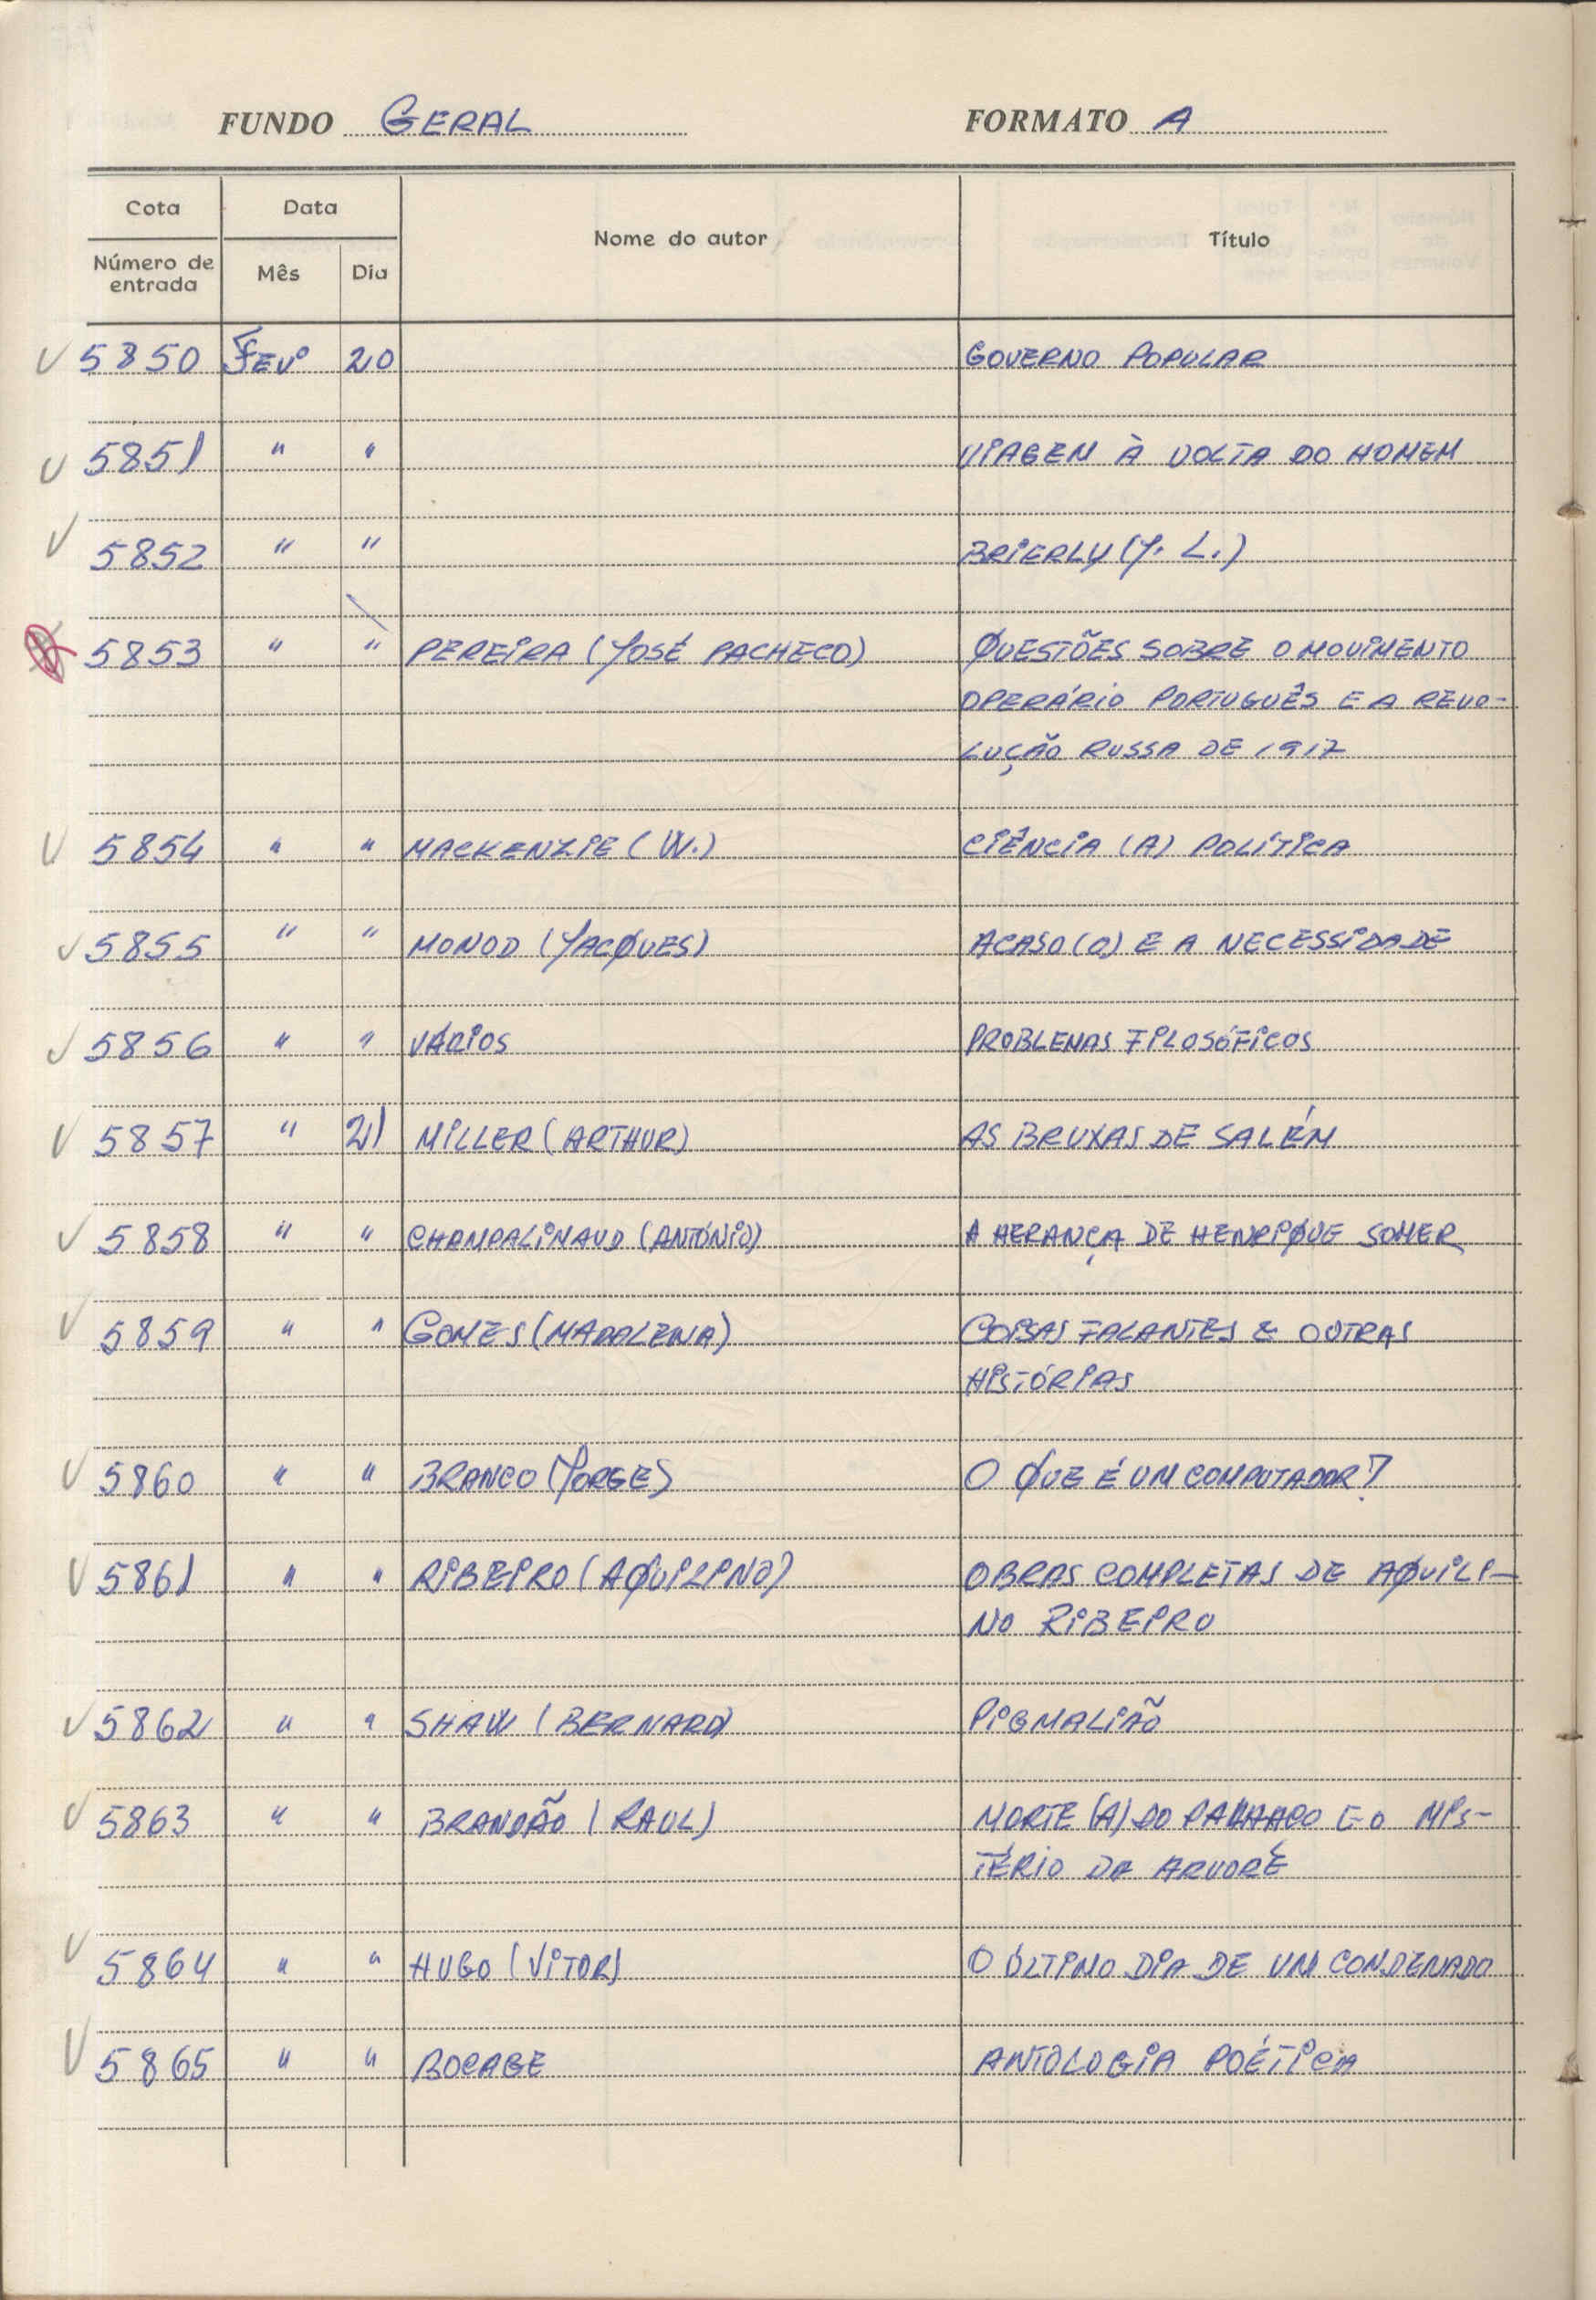 FUNDO GERAL FORMATO A
Cota Data Nome do autor Título
Número de entrada Mês Dia
5850 FEVº 20 GOVERNO POPULAR
5851 " " VIAGEM À VOLTA DO HOMEM
5852 " " BRIERLY (J. L.)
5853 " " PEREIRA (JOSÉ PACHECO) QUESTÕES SOBRE O MOVIMENTO
OPERÁRIO PORTUGUÊS E A REVO-
LUÇÃO RUSSA DE 1917
5854 " " MACKENZIE (W.) CIÊNCIA (A) POLÍTICA
5855 " " MONOD (JACQUES) ACASO (O) E A NECESSIDADE
5856 " " VÁRIOS PROBLEMAS FILOSÓFICOS
5857 " 21 MILLER (ARTHUR) AS BRUXAS DE SALÉM
5858 " " CHAMPALINAUD (ANTÓNIO) A HERANÇA DE HENRIQUE SOMER
5859 " " GOMES (MADALENA) COISAS FALANTES E OUTRAS
HISTÓRIAS
5860 " " BRANCO (JORGE) O QUE É UM COMPUTADOR?
5861 " " RIBEIRO (AQUILINO) OBRAS COMPLETAS DE AQUILI-
NO RIBEIRO
5862 " " SHAW (BERNARD) PIGMALIÃO
5863 " " BRANDÃO (RAUL) MORTE (A) DO PALHAÇO E O MIS-
TÉRIO DA ARVORE
5864 " " HUGO (VITOR) O ÚLTIMO DIA DE UM CONDENADO
5865 " " BOCAGE ANTOLOGIA POÉTICA